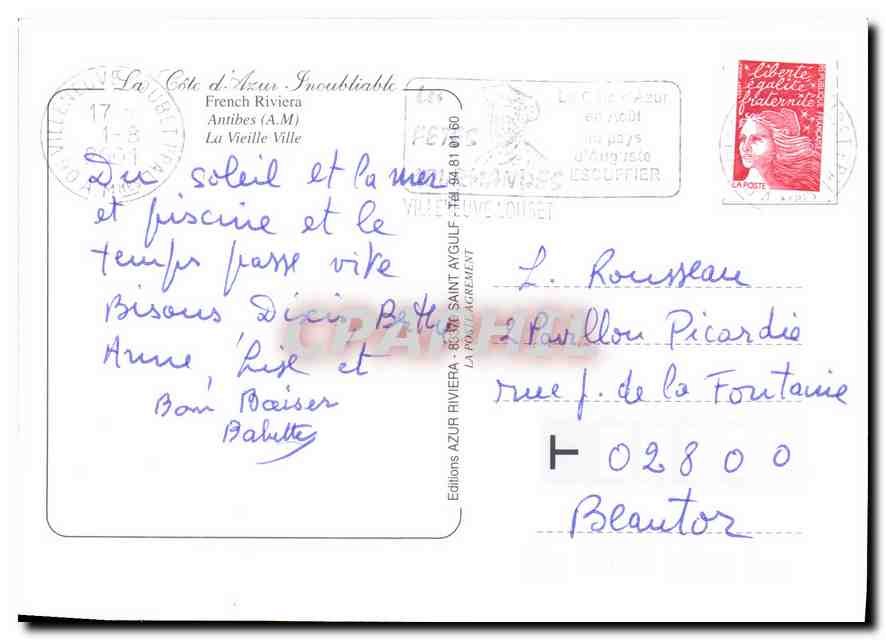 La Côte d'Azur Inoubliable
French Riviera
Antibes (A.M)
La Vieille Ville
17
1-8
2001
LES
FETES
GOURMANDES
VILLENEUVE LOUBET
La Côte d'Azur
en Août
au pays
d'Auguste
ESCOFFIER
liberté
égalité
fraternité
RÉPUBLIQUE FRANÇAISE
LA POSTE
Du soleil et la mer
et piscine et le
temps passe vite
Bisous,
Anne, Lise et
Bon Baiser
Babette
Editions AZUR RIVIERA - 83370 SAINT AYGULF Tél. 94 81 01 60
LA POSTE AGREMENT
L. Rousseau
2 Pavillon Picardie
rue J. de la Fontaine
T 02800
Beautor
CPARAMA